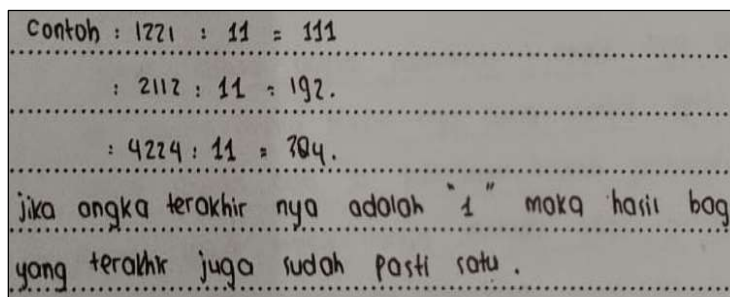 Contoh : 1221 : 11 = 111
: 2112 : 11 = 192.
: 4224 : 11 = 384.
jika angka terakhir nya adalah "1" maka hasil bag
yang terakhir juga sudah pasti satu.